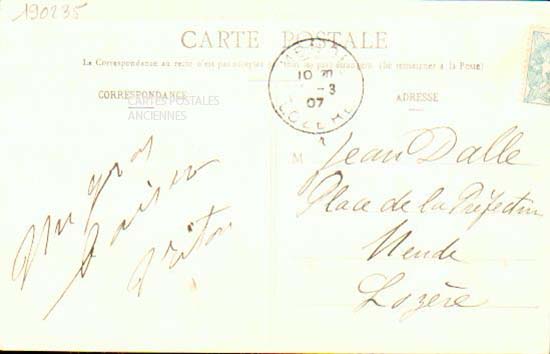 190235
CARTE POSTALE
La Correspondance au recto n'est pas acceptée par tous les pays étrangers. (Se renseigner à la Poste)
CORRESPONDANCE
ADRESSE
CARTES POSTALES
ANCIENNES
10
-3
07
LOZERE
Un gros
baiser
M Jean Dalle
Place de la Préfecture
Mende
Lozère